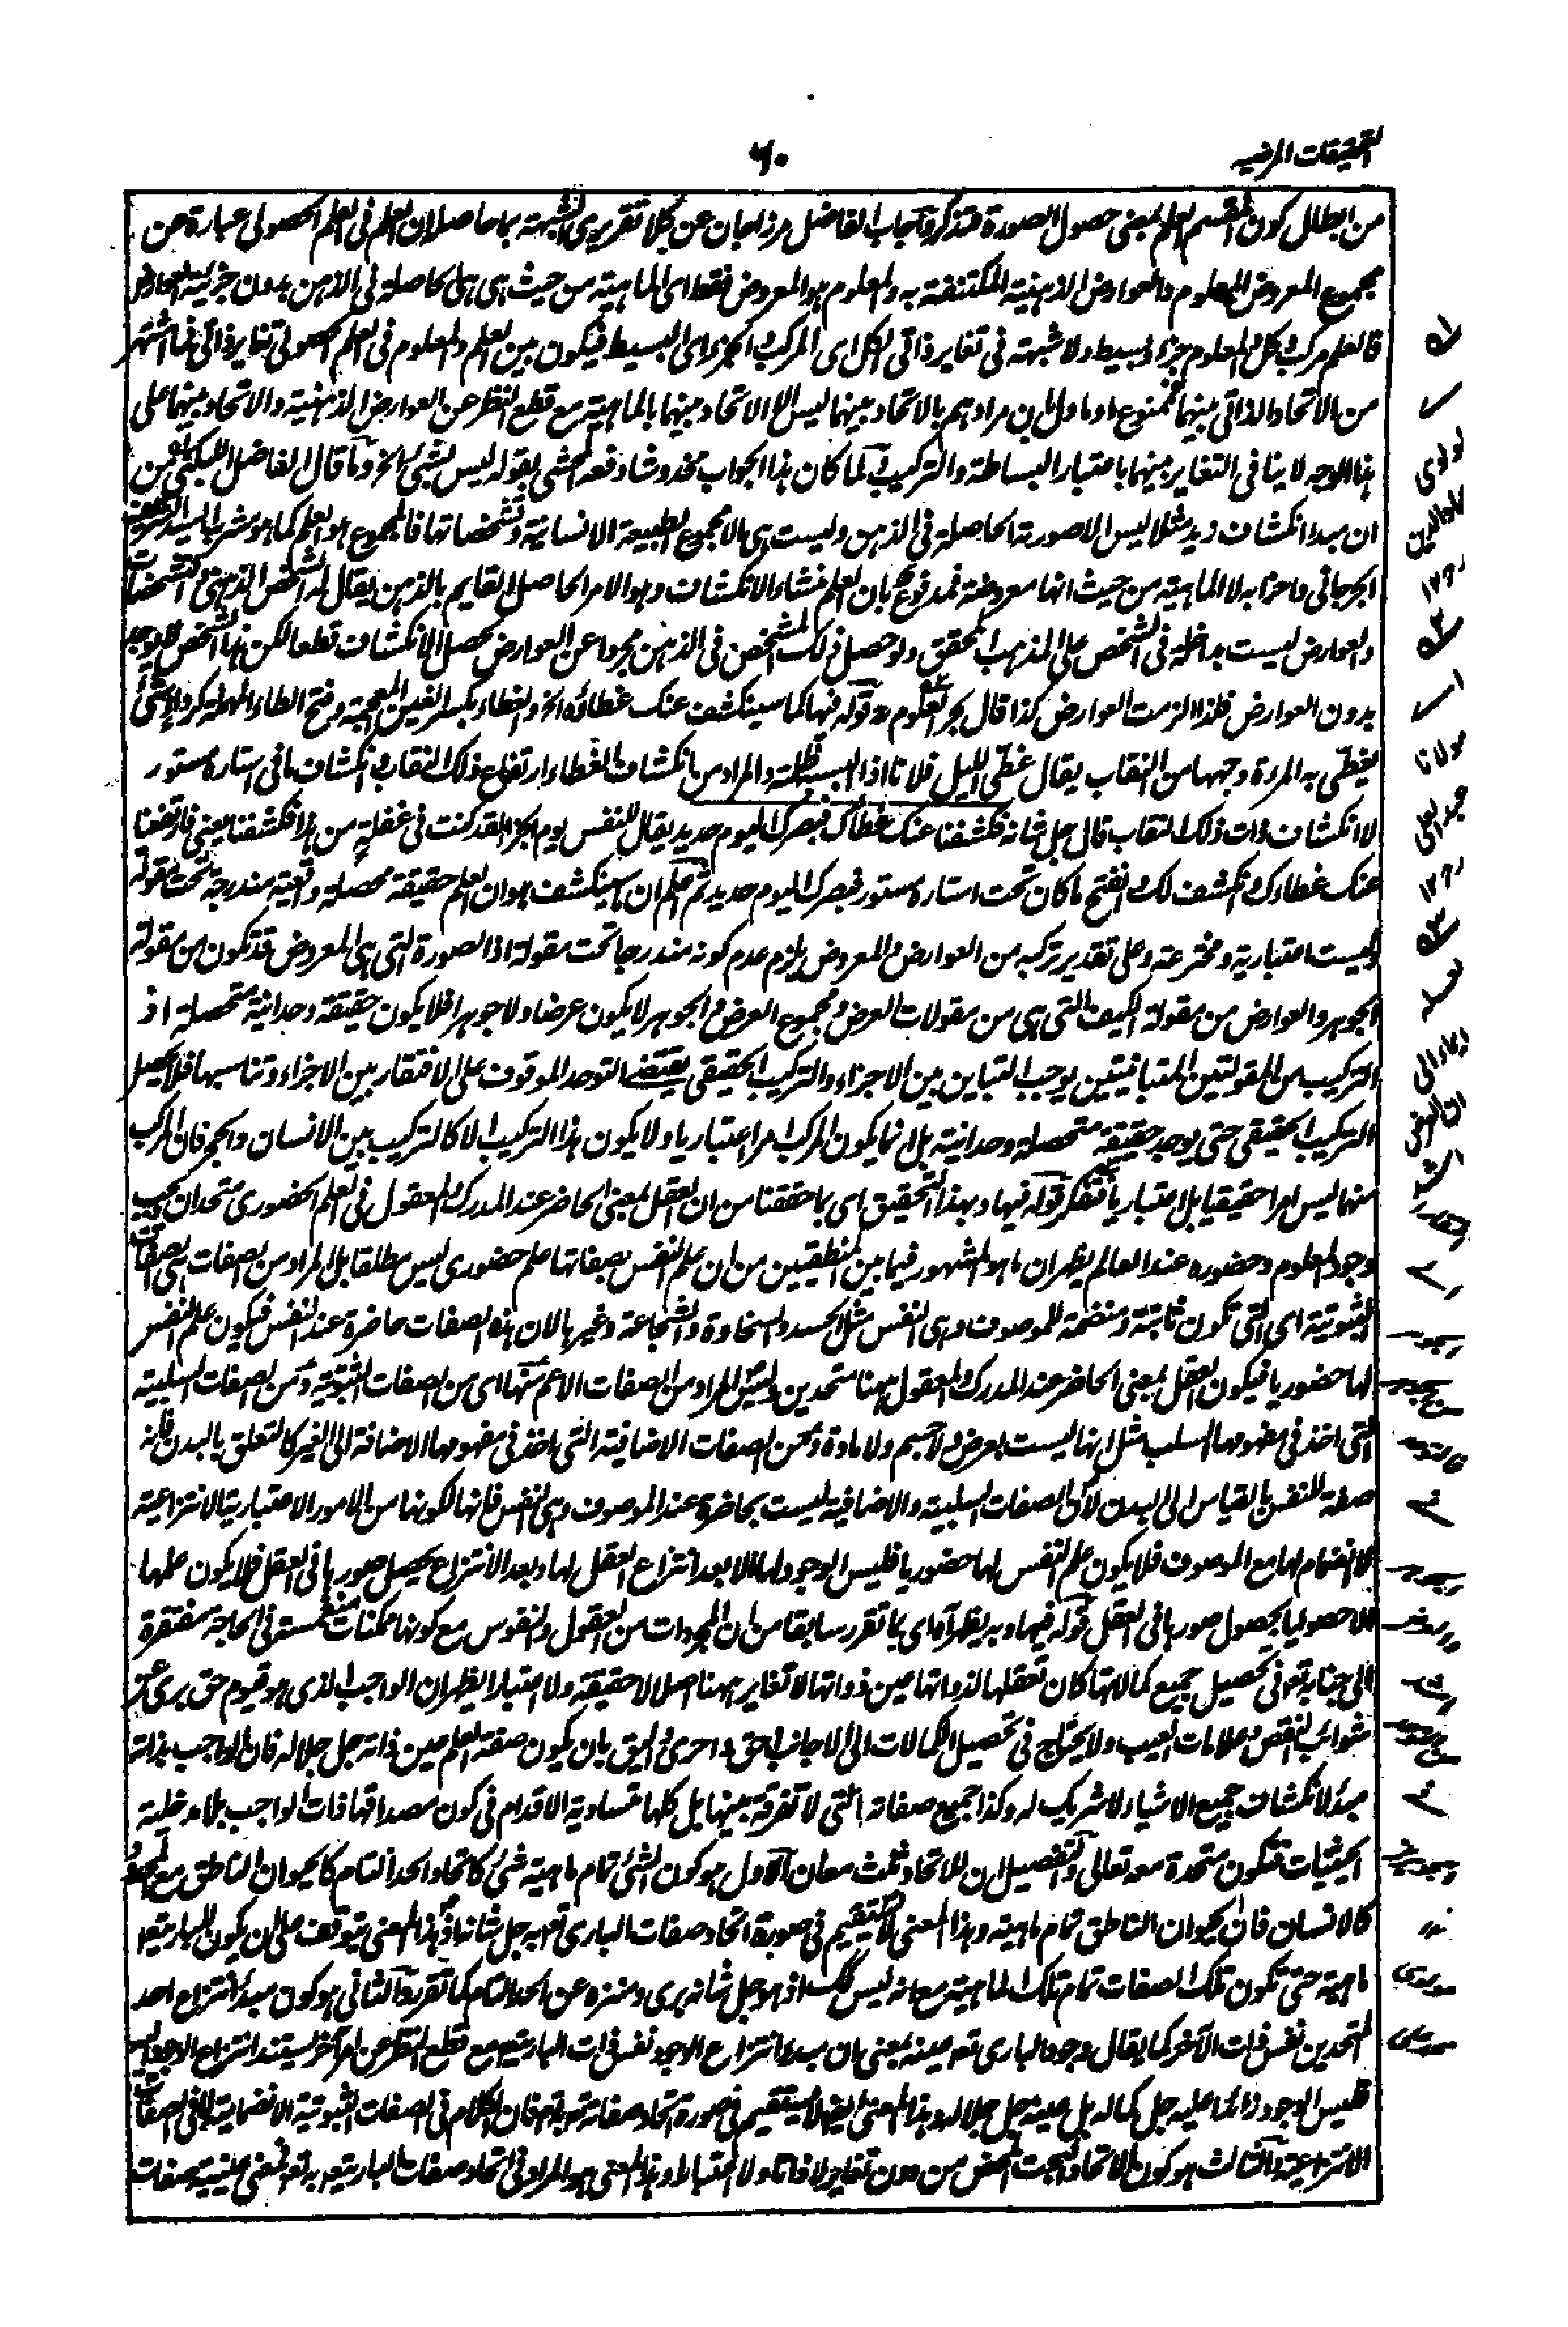 التحقیقات المرضیہ
۶۰
من ابطال کون المقسم العلم بمعنی حصول الصورة فتذکر وآجاب الفاضل مرزاجان عن کلا تقریری الشبهة بما حاصله ان العلم فی العلم الحصولی عبارة عن
مجموع المعروض المعلوم والعوارض الذهنیة المکتنفة به والمعلوم هو المعروض فقط ای الماهیة من حیث هی هی الحاصلة فی الذهن بدون جزئیة العوارض
فالعلم مرکب وکل والمعلوم جزء وبسیط ولا شبهة فی تغایر ذاتی الکل ای المرکب والجزء ای البسیط فیکون بین العلم والمعلوم فی العلم الحصولی تغایر ذاتی فما اشتهر
من الاتحاد الذاتی بینهما ممنوع او ماول بان مرادهم بالاتحاد بینهما لیس الا الاتحاد بینهما بالماهیة مع قطع النظر عن العوارض الذهنیة والاتحاد بینهما علی
هذا الوجه لا ینافی التغایر بینهما باعتبار البساطة والترکیب ولما کان هذا الجواب مخدوشا دفعه المحشی بقوله لیس بشیٔ الخ وما قال الفاضل اللبکنی من
ان مبدأ انکشاف زید مثلا لیس الا صورته الحاصلة فی الذهن ولیست هی الا مجموع الطبیعة الانسانیة وتشخصاتها فالمجموع هو العلم کما هو مشرب السید الشریف
الجرجانی واحزابه لا الماهیة من حیث انها معروضة فمدفوع بان العلم منشاء الانکشاف وهو الامر الحاصل القایم بالذهن یقال له الشخص الذهنی التشخصات
والعوارض لیست بداخلة فی الشخص علی المذهب المحقق ولو حصل ذلک الشخص فی الذهن مجردا عن العوارض یحصل الانکشاف قطعا لکن هذا الشخص لا یوجد
بدون العوارض فلذا لزمت العوارض کذا قال بحر العلوم قوله فیها کما سینکشف عنک غطائه الخ والغطاء بکسر الغین المعجمة وفتح الطاء المهملة کرداء شیٔ
یغطی به المرءة وجهها من النقاب یقال غطی اللیل فلانا اذا البسه ظلمته والمراد من انکشاف الغطاء ارتفاع ذلک النقاب وانکشاف ما فی استاره مستور
لا انکشاف ذات ذلک النقاب قال جل شانه فکشفنا عنک غطاءک فبصرک الیوم حدید یقال للنفس یوم الجزاء لقد کنت فی غفلة من هذا فکشفنا یعنی فارتفعنا
عنک غطاءک وانکشف لک وانفتح ما کان تحت استاره مستور فبصرک الیوم حدید ثم اعلم ان ما سینکشف هو ان العلم حقیقة محصلة واقعیة مندرجة تحت مقولة
ولیست اعتباریة ومخترعة وعلی تقدیر ترکبه من العوارض والمعروض یلزم عدم کونه مندرجا تحت مقولة اذ الصورة التی هی المعروض قد تکون من مقولة
الجوهر والعوارض من مقولة الکیف التی هی من مقولات العرض ومجموع العرض والجوهر لا یکون عرضا ولا جوهرا فلا یکون حقیقة وحدانیة متحصلة اذ
الترکیب من المقولتین المتباینتین یوجب التباین بین الاجزاء والترکیب الحقیقی یقتضی التوحد الموقوف علی الافتقار بین الاجزاء وتناسبها فلا یحصل
الترکیب الحقیقی حتی یوجد حقیقة متحصلة وحدانیة بل انما یکون المرکب امرا اعتباریا ولا یکون هذا الترکیب الا کالترکیب بین الانسان والحجر فان المرکب
منهما لیس امرا حقیقیا بل اعتباریا فتفکر قوله فیها وبهذا التحقیق ای بما حققنا من ان العقل بمعنی الحاضر عند المدرک والمعقول فی العلم الحضوری متحدان بحسب
وجود المعلوم وحضوره عند العالم یظهر ان ما هو المشهور فیما بین المنطقیین من ان علم النفس بصفاتها علم حضوری لیس مطلقا بل المراد من الصفات هی الصفات
الثبوتیة ای التی تکون ثابتة ومنضمة للموصوف وهی النفس مثل الحسد والسخاوة والشجاعة وغیرها لان هذه الصفات حاضرة عند النفس فیکون علم النفس
لها حضوریا فیکون العقل بمعنی الحاضر عند المدرک والمعقول ههنا متحدین ولیس المراد من الصفات الاعم منها ای من الصفات الثبوتیة ومن الصفات السلبیة
التی اخذ فی مفهومها السلب مثل انها لیست بعرض ولا جسم ولا مادة ومن الصفات الاضافیة التی اخذ فی مفهومها الاضافة الی الغیر کالتعلق بالبدن فانه
صفة للنفس بالقیاس الی البدن لان الصفات السلبیة والاضافیة لیست بحاضرة عند الموصوف وهی النفس فانها لکونها من الامور الاعتباریة الانتزاعیة
لا انضمام لها مع الموصوف فلا یکون علم النفس لها حضوریا فلیس الوجود لها الا بعد انتزاع العقل لها وبعد الانتزاع یحصل صورها فی العقل فلا یکون علمها
الا حصولیا بحصول صورها فی العقل قوله فیها وبه یظهر آه ای بما تقرر سابقا من ان المجردات من العقول والنفوس مع کونها ممکنات منغمسة فی الحاجة مفتقرة
الی جنابه تعه فی تحصیل جمیع کمالاتها کان تعقلها لذواتها عین ذواتها لا تغایر ههنا اصلا لا حقیقة ولا اعتبارا یظهر ان الواجب الذی هو قیوم حق بری عن
شوائب النقص وعلامات العیب ولا یحتاج فی تحصیل الکمالات الی الاجانب احق واحری والیق بان یکون صفة العلم عین ذاته جل جلاله فان الواجب بذاته
مبدأ لانکشاف جمیع الاشیاء لا شریک له وکذا جمیع صفاته التی لا تفرقة بینها بل کلها متساویة الاقدام فی کون مصداقها ذات الواجب بلا مدخلیة
الحیثیات فتکون متحدة معه تعالی والتفصیل ان للاتحاد ثلث معان الاول هو کون الشیٔ تمام ماهیة شیٔ کاتحاد الحد التام کالحیوان الناطق مع المحدود
کالانسان فان الحیوان الناطق تمام ماهیة وهذا المعنی لا یستقیم فی صورة اتحاد صفات الباری تعه به جل شانه اذ هذا المعنی یتوقف علی ان یکون للباریتعه
ماهیة حتی تکون تلک الصفات تمام تلک الماهیة مع انه لیس کک اذ هو جل شانه بری ومنزه عن الحد التام کما تقرر والثانی هو کون مبدأ انتزاع احد
المتحدین نفس ذات الآخر کما یقال وجود الباری تعه عینه بمعنی ان مبدأ انتزاع الوجود نفس ذات الباریتعه مع قطع النظر عن امر آخر یستند انتزاع الوجود الیه
فلیس الوجود زائدا علیه جل کماله بل عینه جل جلاله وهذا المعنی ایضا لا یستقیم فی صورة اتحاد صفاته تعه به تعه فان الکلام فی الصفات الثبوتیة الانضمامیة لا فی الصفات
الانتزاعیة والثالث هو کون الاتحاد البحت المحض من دون تغایر لا ذاتا ولا اعتبارا وهذا المعنی هو المراد فی اتحاد صفات الباریتعه به تعه فمعنی عینیة صفات